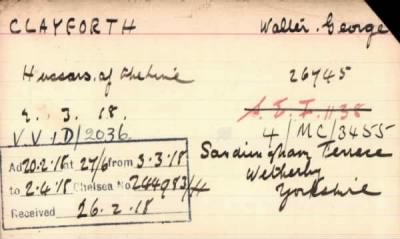 CLAYFORTH Walter. George
Hussars. of the line 26745
2. 3. 18. S.B.I. 1138
V.V.1D/2036 4/MC/3455
Sandringham Terrace
Wetherby
Yorkshire
Ad 20.2.18 at 27/6 from 3.3.18
to 2.4.18 Chelsea No 244983/H
Received 26.2.18